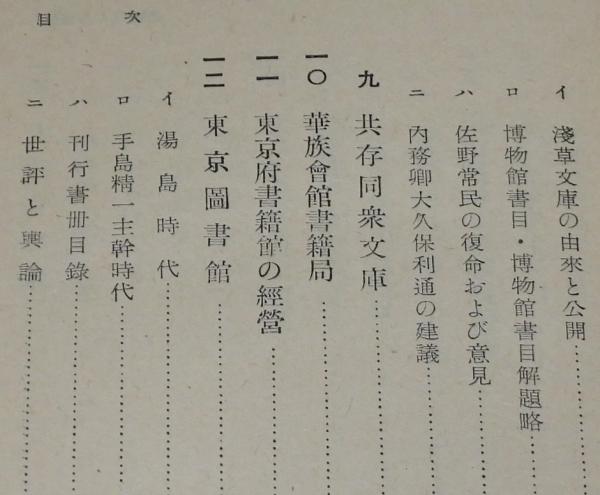 イ 淺草文庫の由來と公開
ロ 博物館書目・博物館書目解題略
ハ 佐野常民の復命および意見
ニ 内務卿大久保利通の建議
九 共存同衆文庫
一〇 華族會館書籍局
一一 東京府書籍館の經營
一二 東京圖書館
イ 湯島時代
ロ 手島精一主幹時代
ハ 刊行書册目錄
ニ 世評と輿論
目次